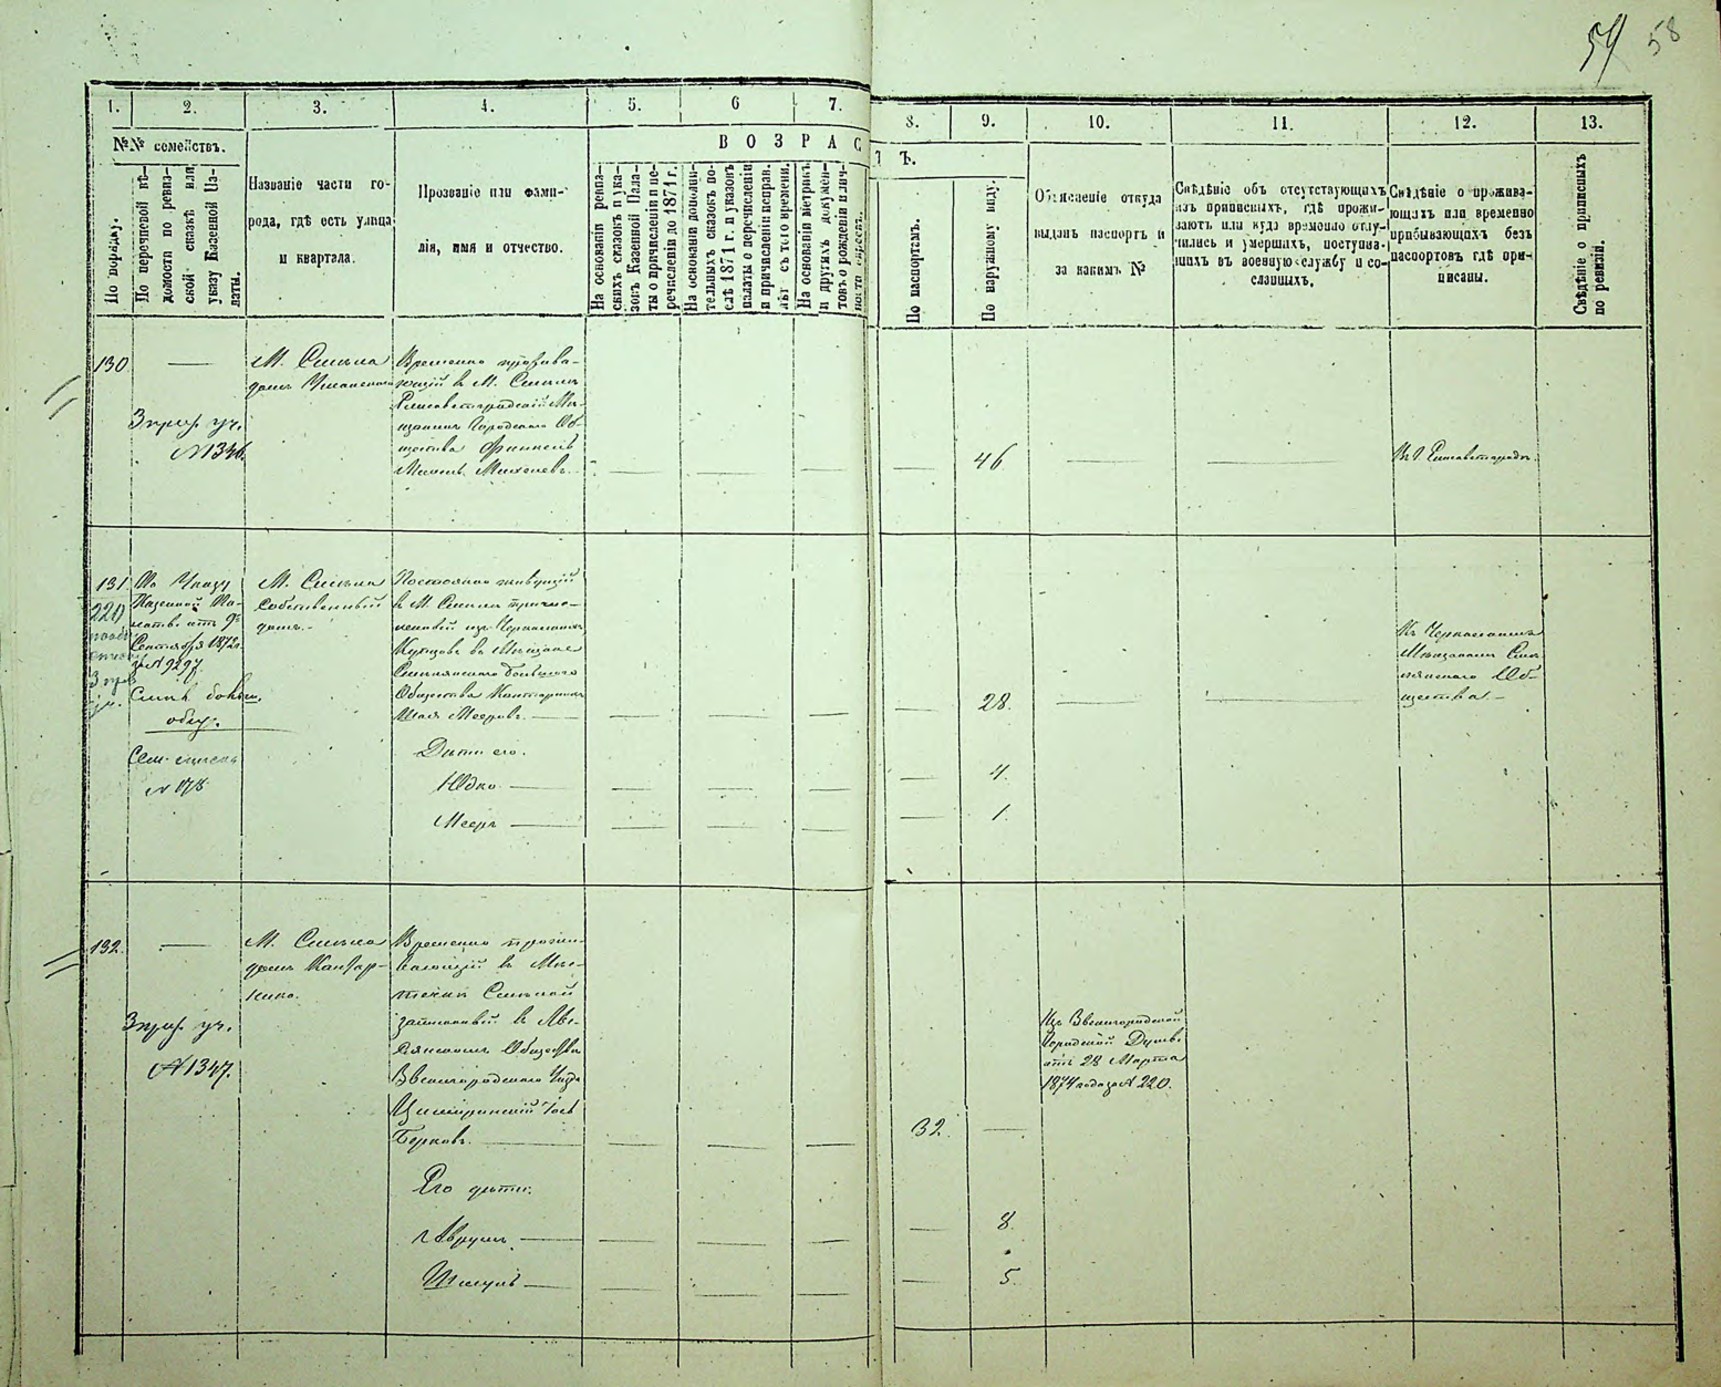 54 58
1. 2. 3. 4. 5. 6 7. 8. 9. 10. 11. 12. 13.
№№ семействъ.
По порядку.
По перечневой вѣ-
домости по ревиз-
ской сказкѣ или
указу Казенной Па-
латы.
Названіе части го-
рода, гдѣ есть улица
и квартала.
Прозваніе или фами-
лія, имя и отчество.
ВОЗРАСТЪ.
На основаніи ревиз-
скихъ сказокъ и ука-
зовъ Казенной Пала-
ты о причисленіи и пе-
речисленіи до 1871 г.
На основаніи дополни-
тельныхъ сказокъ по-
слѣ 1871 г. и указовъ
палаты о перечисленіи
и причисленіи исправ.
лѣт съ того времени.
На основаніи метрик.
и другихъ докумен-
товъ о рожденіи и лич-
По паспортамъ.
По наружному виду.
Объясненіе откуда
выданъ паспортъ и
за какимъ №
Свѣдѣніе объ отсутствующихъ
изъ приписныхъ, гдѣ прожи-
ваютъ или куда временно отлу-
чились и умершихъ, поступив-
шихъ въ военную службу и со-
сланныхъ.
Свѣдѣніе о прожива-
ющихъ или временно
прибывающихъ безъ
паспортовъ гдѣ при-
писаны.
Свѣдѣніе о приписныхъ
по ревизіи.
130
3 приз. уч.
№ 1346.
М. Смѣла
домъ
Временно прожива-
ющій в М. Смѣлѣ
Елисаветградскій Мѣ-
щанинъ Городского Об-
щества
46
Въ г. Елисаветградѣ.
131.
220
3 приз
уч.
По Указу
Казенной Па-
латы отъ 9го
Сентября 1872 г.
за № 9297
Смѣл. больш.
общ.
Сем. списокъ
№ 178
М. Смѣла
Собственный
домъ.
Постоянно живущій
в М. Смѣлѣ причис-
ленный изъ Черкасскихъ
Купцовъ въ Мѣщане
Смѣлянского большого
Общества
Мееровъ.
28.
Къ Черкасскимъ
Мѣщанамъ Смѣ-
лянского Об-
щества.
Дѣти его.
Юдко 4.
Меерь 1.
132.
3 приз. уч.
№ 1347.
М. Смѣла
домъ Кантар-
жика.
Временно прожи-
вающій въ Мѣс-
течкѣ Смѣлой
записанный въ
Обществѣ
Звенигородского Уѣзда
Берковъ.
32.
Изъ Звенигородской
Городской Думы
отъ 28 Марта
1874 года за № 220.
Его дѣти.
Аврумъ 8.
Шмуль 5.